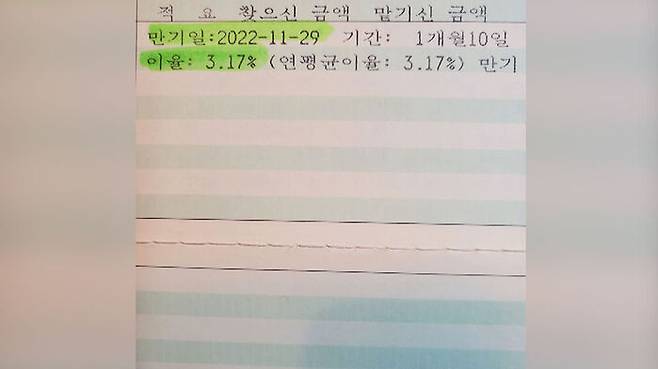 적 요 찾으신 금액 맡기신 금액
만기일:2022-11-29 기간: 1개월10일
이율: 3.17% (연평균이율: 3.17%) 만기